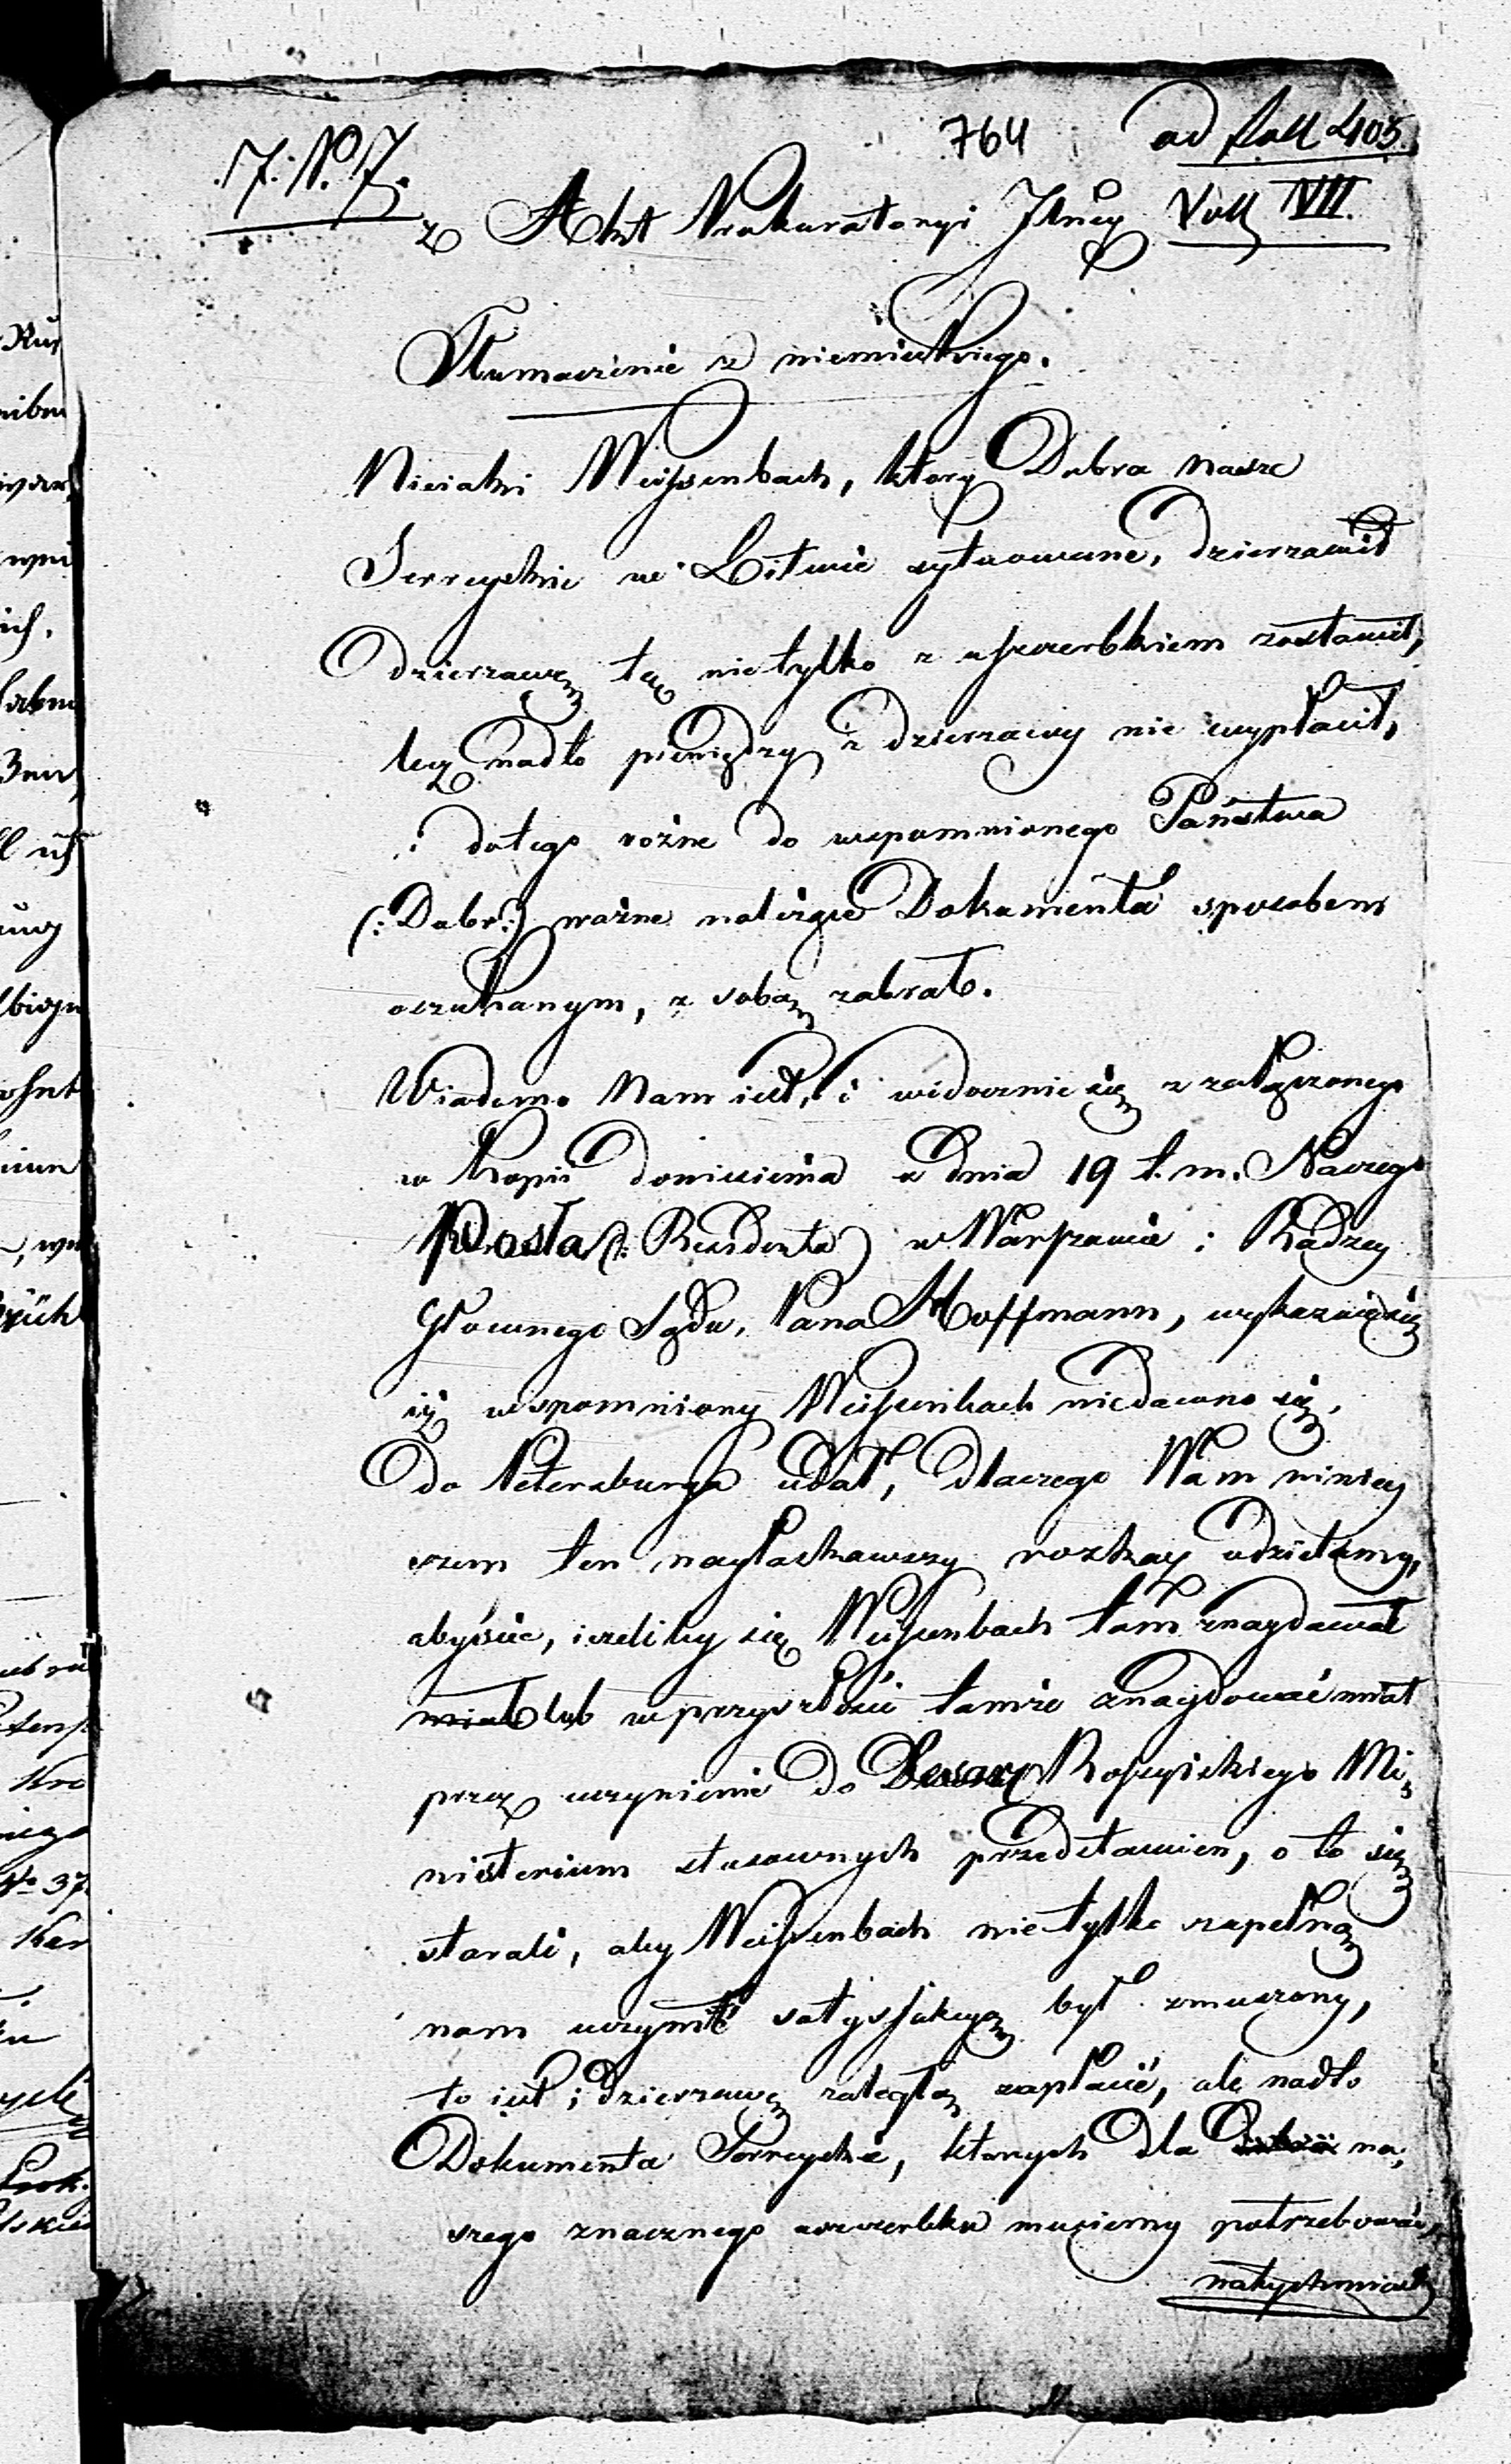 764 ad foll 405.
7. No. 7.
z Akt Prokuratoryi Jlney Voll VII.
Tłumaczenie z niemieckiego.
Nieiaki Weissenbach, ktory Dobra nasze
Serreyskie w Litwie sytuowane, dzierzawił
dzierzawę tę nietylko z uszczerbkiem zostawił,
lecz nadto pieniędzy z dzierzawy nie wypłacił,
i dotego rożne do wspomnionego Państwa
(: Dobr :) ważne należące Dokumenta sposobem
oszukanym, z sobą zabrał.
Wiadomo Nam iest, i widocznie się z załączonego
w kopii doniesienia z dnia 19 t. m. Naszego
Posła (: Residenta) w Warszawie i Radzcy
Głownego Sądu, Pana Hoffmann, wykazuie się
iż wspomniony Weissenbach niedawno się,
do Petersburga udał, dlaczego Wam niniey
szem ten nayłaskawszy rozkaz udzielamy,
abyście, ieżeliby się Weissenbach tam znaydował
miał lub w przyszłości tamże znaydować miał
przez uczynienie do Cesarz Rossyiskiego Mi,
nisterium stosownych przedstawien, o to się
starali, aby Weissenbach nietylko zupełną
nam uczynić satysfakcyą był zmuszony,
to iest i dzierzawę zaległą zapłacić, ale nadto
Dokumenta Serreyskie, ktorych dla na,
szego znacznego uszczerbku musiemy potrzebować,
natychmiast